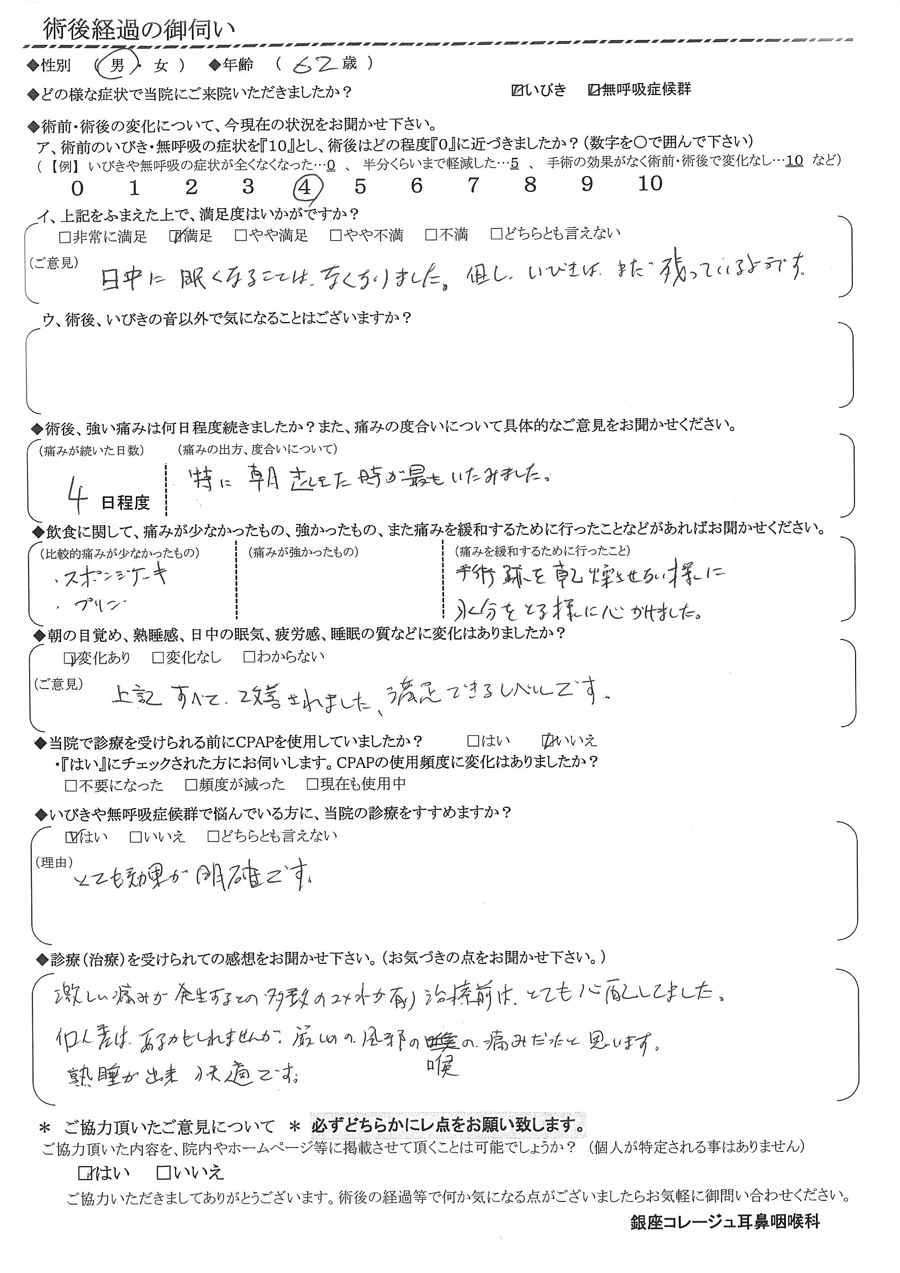 術後経過の御伺い
◆性別 （ 男 ・ 女 ） ◆年齢 （ 62 歳 ）
◆どの様な症状で当院にご来院いただきましたか？ ☑いびき ☑無呼吸症候群
◆術前・術後の変化について、今現在の状況をお聞かせ下さい。
ア、術前のいびき・無呼吸の症状を『10』とし、術後はどの程度『0』に近づきましたか？（数字を○で囲んで下さい）
（【例】 いびきや無呼吸の症状が全くなくなった…0 、 半分くらいまで軽減した…5 、 手術の効果がなく術前・術後で変化なし…10 など）
0 1 2 3 4 5 6 7 8 9 10
イ、上記をふまえた上で、満足度はいかがですか？
□非常に満足 ☑満足 □やや満足 □やや不満 □不満 □どちらとも言えない
（ご意見） 日中に 眠くなることは、なくなりました。但し、いびきは、まだ 残っているようです。
ウ、術後、いびきの音以外で気になることはございますか？
◆術後、強い痛みは何日程度続きましたか？また、痛みの度合いについて具体的なご意見をお聞かせください。
（痛みが続いた日数） （痛みの出方、度合いについて）
4 日程度 特に 朝 起きた時が最もいたみました。
◆飲食に関して、痛みが少なかったもの、強かったもの、また痛みを緩和するために行ったことなどがあればお聞かせください。
（比較的痛みが少なかったもの） （痛みが強かったもの） （痛みを緩和するために行ったこと）
・スポンジケーキ 手術跡を乾燥させない様に
・プリン 水分をとる様に心がけました。
◆朝の目覚め、熟睡感、日中の眠気、疲労感、睡眠の質などに変化はありましたか？
☑変化あり □変化なし □わからない
（ご意見） 上記すべて、改善されました、満足できるレベルです。
◆当院で診療を受けられる前にCPAPを使用していましたか？ □はい ☑いいえ
・『はい』にチェックされた方にお伺いします。CPAPの使用頻度に変化はありましたか？
□不要になった □頻度が減った □現在も使用中
◆いびきや無呼吸症候群で悩んでいる方に、当院の診療をすすめますか？
☑はい □いいえ □どちらとも言えない
（理由） とても効果が明確です。
◆診療（治療）を受けられての感想をお聞かせ下さい。（お気づきの点をお聞かせ下さい。）
激しい痛みが発生するとの多数のコメントが有り治療前は、とても心配してました。
個人差は、あるかもしれませんが、厳しめの風邪の喉の痛みだったと思います。
熟睡が出来 快適です。
＊ ご協力頂いたご意見について ＊ 必ずどちらかにレ点をお願い致します。
ご協力頂いた内容を、院内やホームページ等に掲載させて頂くことは可能でしょうか？ （個人が特定される事はありません）
☑はい □いいえ
ご協力いただきましてありがとうございます。術後の経過等で何か気になる点がございましたらお気軽に御問い合わせください。
銀座コレージュ耳鼻咽喉科